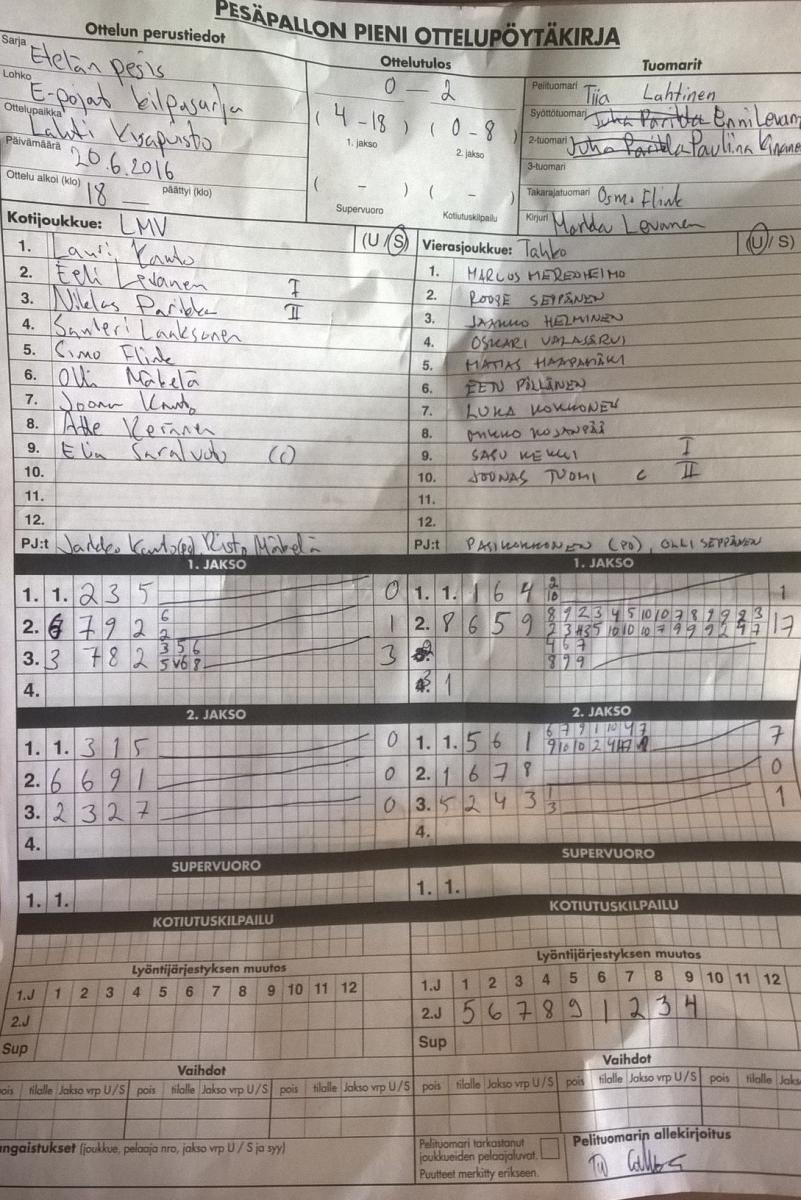 PESÄPALLON PIENI OTTELUPÖYTÄKIRJA
Ottelun perustiedot
Sarja Etelän pesis
Lohko E-pojat kilpasarja
Ottelupaikka Lahti
Päivämäärä 20.6.2016
Ottelu alkoi (klo) 18 päättyi (klo)
Ottelutulos
0 - 2
( 4 - 18 ) ( 0 - 8 )
1. jakso 2. jakso
( - ) ( - )
Supervuoro Kotiutuskilpailu
Tuomarit
Pelituomari Tiia Lahtinen
Syöttötuomari Juha Parikka Enni Levan
2-tuomari Juha Parikka Pauliina
3-tuomari
Takarajatuomari Osmo Flink
Kirjuri Markku Levanen
Kotijoukkue: LMV (U/S)
1. Lauri Kauto
2. Eeli Levanen I
3. Niklas Parikka II
4. Santeri Lauksonen
5. Simo Flink
6. Olli Mäkelä
7. Joona Kauto
8. Atte
9. Elia (c)
10.
11.
12.
PJ:t Jarkko Kauto (pj), Risto Mäkelä
Vierasjoukkue: Tahko (U/S)
1. MARCUS MERENHEIMO
2. ROOPE SEPPÄNEN
3. JAAKKO HELMINEN
4. OSKARI VALASJÄRVI
5. MATIAS HAAPAMÄKI
6. EETU PÖLLÄNEN
7. LUKA KOKKONEN
8. MIKKO
9. SASU I
10. JOONAS TUOMI C II
11.
12.
PJ:t PASI KOKKONEN (PJ), OLLI SEPPÄNEN
1. JAKSO
1. 1. 2 3 5 0
2. 7 9 2 6 2 1
3. 3 7 8 2 3 5 6 3
4.
1. JAKSO
1. 1. 1 6 4 2 10 1
2. 8 6 5 9 8 9 2 3 4 5 10 10 7 8 9 9 2 3 17
4 6 7
8 9 9
1
2. JAKSO
1. 1. 3 1 5 0
2. 6 6 9 1 0
3. 2 3 2 7 0
4.
2. JAKSO
1. 1. 5 6 1 6 7 9 1 10 4 7 7
2. 1 6 7 8 0
3. 5 2 4 3 1 3 1
4.
SUPERVUORO
1. 1.
SUPERVUORO
1. 1.
KOTIUTUSKILPAILU
KOTIUTUSKILPAILU
Lyöntijärjestyksen muutos
1.J 1 2 3 4 5 6 7 8 9 10 11 12
2.J
Sup
Lyöntijärjestyksen muutos
1.J 1 2 3 4 5 6 7 8 9 10 11 12
2.J 5 6 7 8 9 1 2 3 4
Sup
Vaihdot
pois tilalle Jakso vrp U/S pois tilalle Jakso vrp U/S pois tilalle Jakso vrp U/S
Vaihdot
pois tilalle Jakso vrp U/S pois tilalle Jakso vrp U/S pois tilalle Jakso
ngaistukset (joukkue, pelaaja nro, jakso vrp U / S ja syy)
Pelituomari tarkastanut
joukkueiden pelaajaluvat.
Puutteet merkitty erikseen.
Pelituomarin allekirjoitus